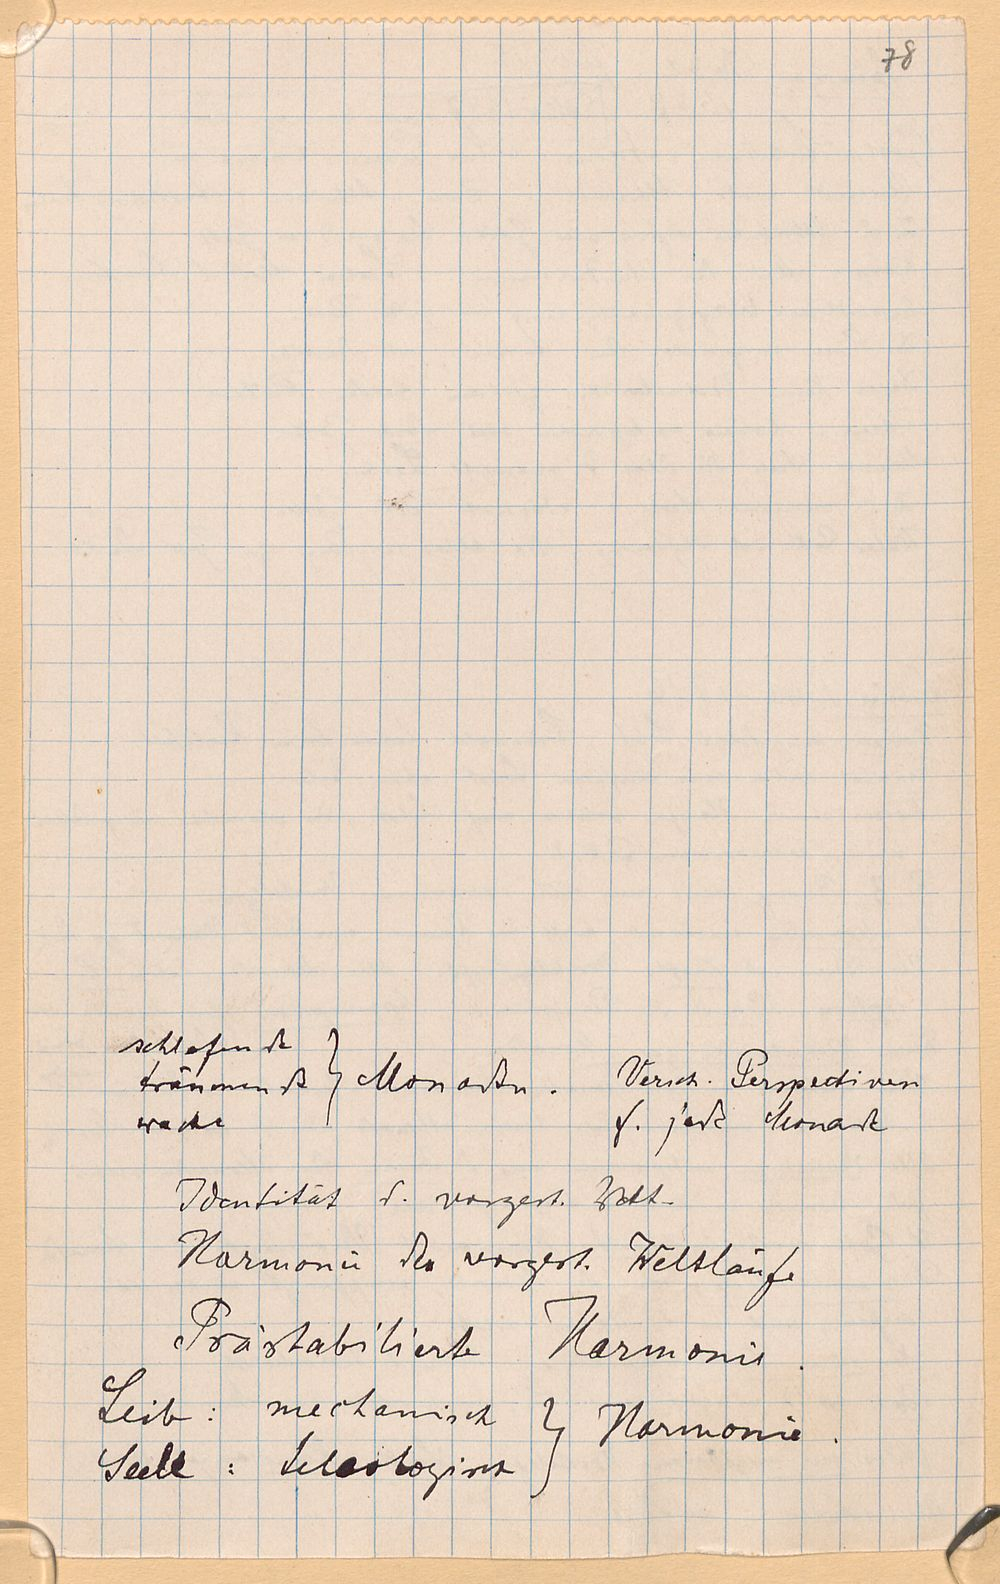 78
schlafende
träumende } Monaden.
wache
Versch. Perspectiven
f. jede Monade
Identität d. vorgest. Welt.
Harmonie der vorgest. Weltläufe
Prästabilierte Harmonie.
Leib: mechanisch } Harmonie.
Seele: teleologisch